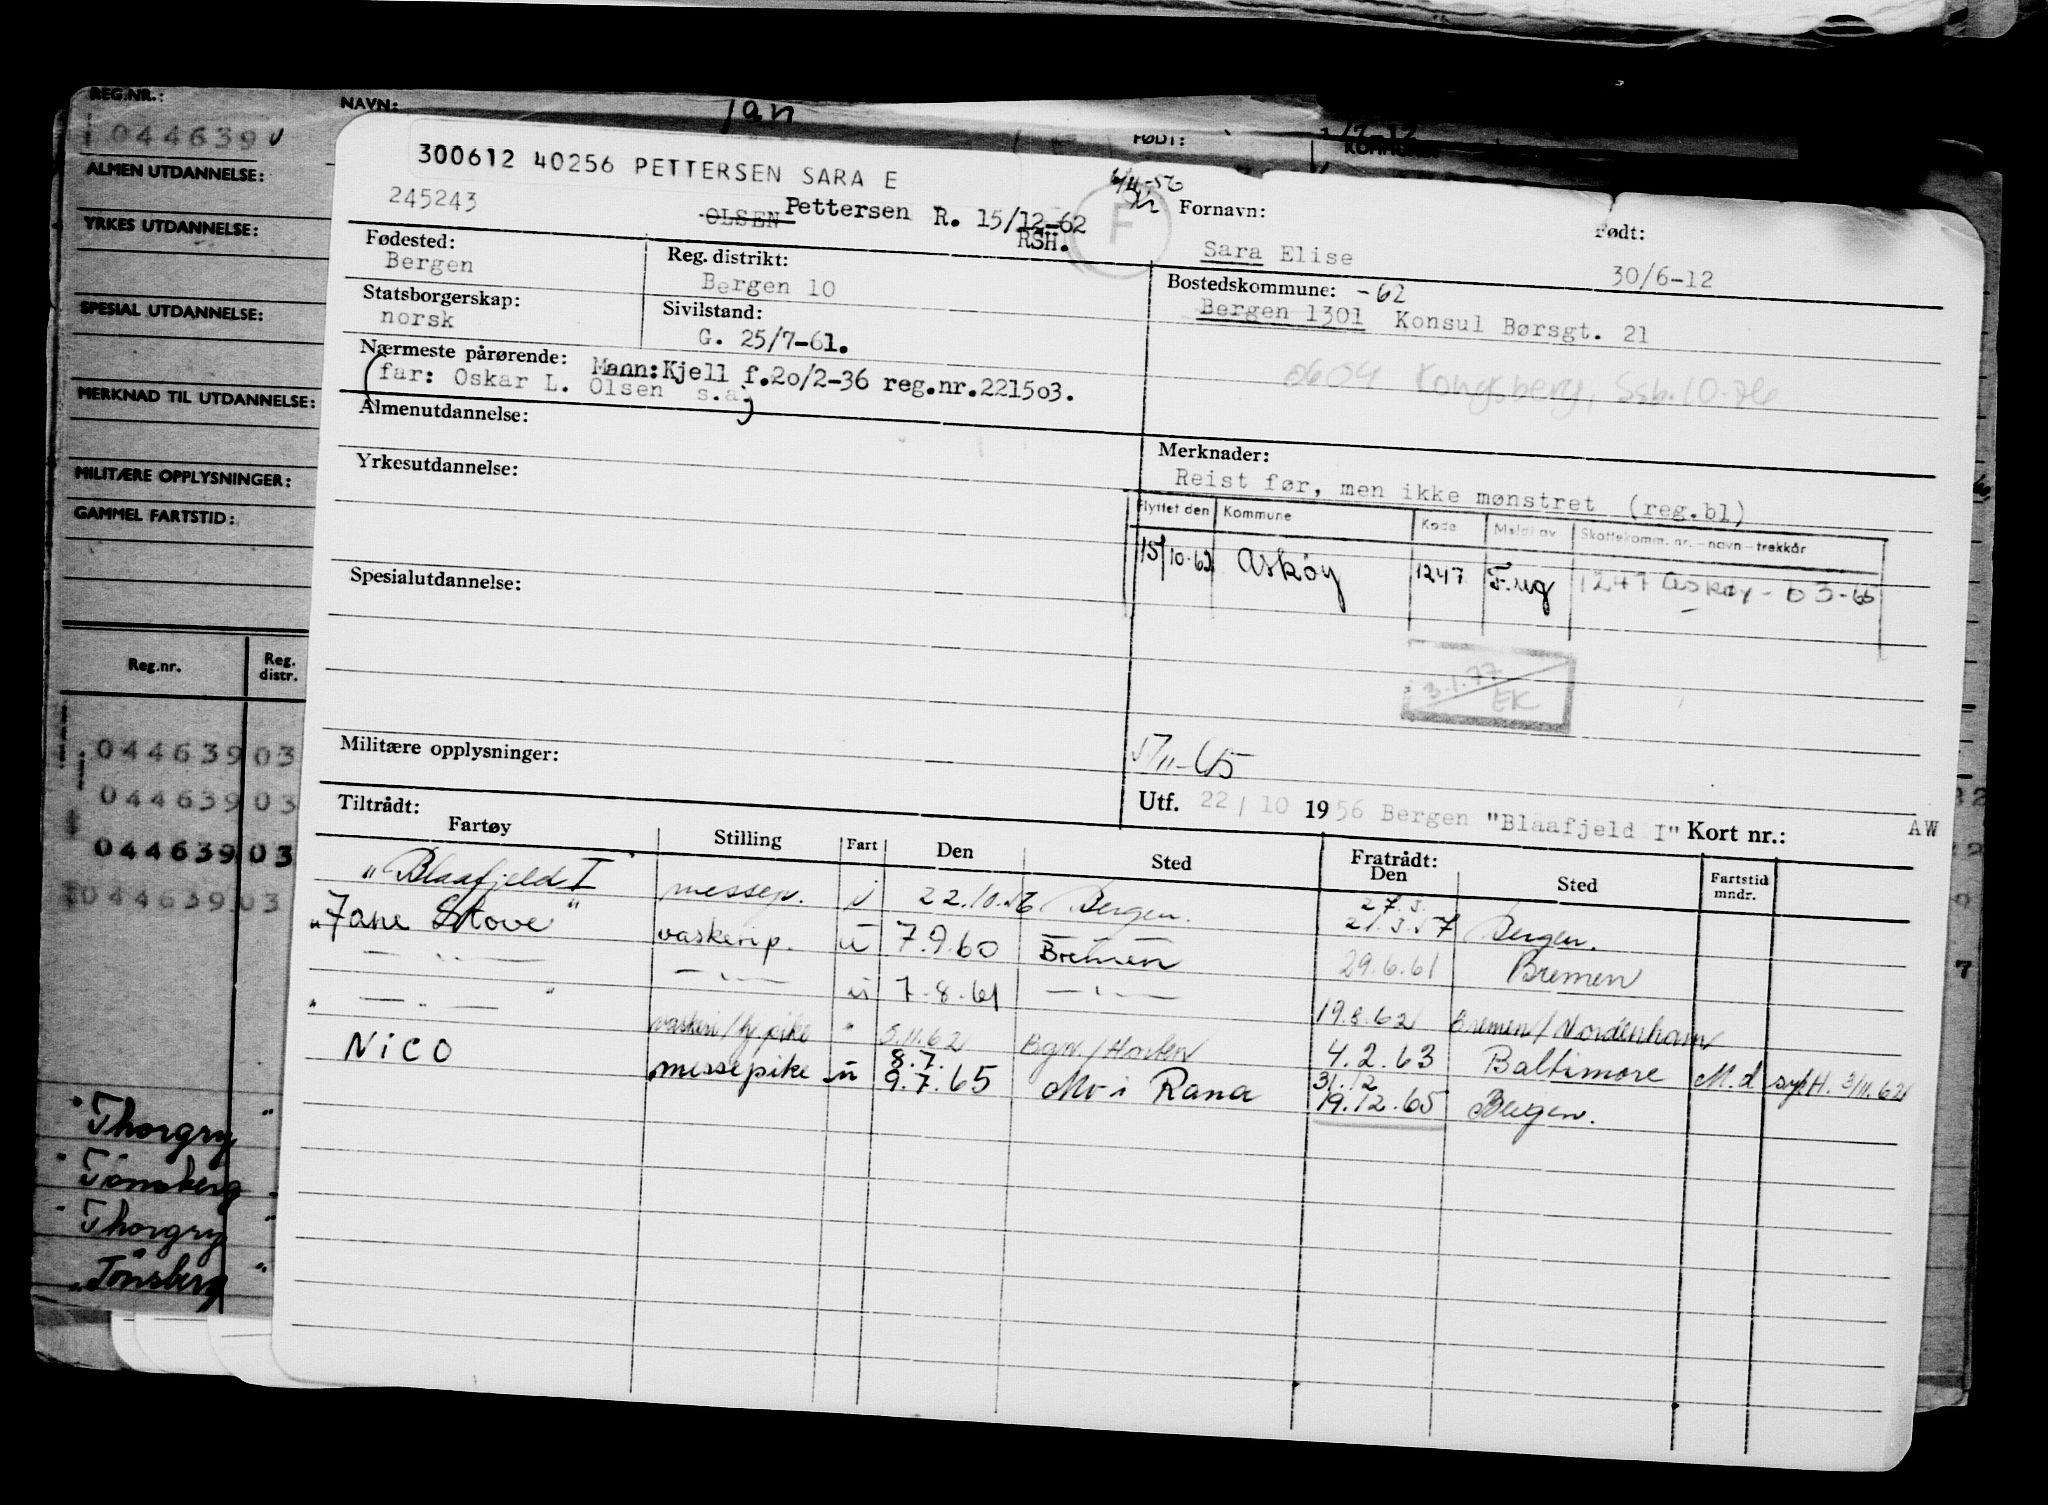 REG.NR.: NAVN: Jan FØDT:
044639
ALMEN UTDANNELSE:
YRKES UTDANNELSE:
SPESIAL UTDANNELSE:
MERKNAD TIL UTDANNELSE:
MILITÆRE OPPLYSNINGER:
GAMMEL FARTSTID:
Reg.nr. Reg. distr.
044639 03
044639 03
044639 03
044639 03
" Thorgry "
" Tönsberg "
" Thorgry "
" Tönsberg "
300612 40256 PETTERSEN SARA E
245243 OLSEN Pettersen R. 15/12-62 RSH. F
Fornavn: Sara Elise
Født: 30/6-12
Fødested: Bergen
Reg. distrikt: Bergen 10
Bostedskommune: -62
Bergen 1301 Konsul Børsgt. 21
Statsborgerskap: norsk
Sivilstand: G. 25/7-61.
0604 Kongsberg, Ssb. 10-76
Nærmeste pårørende: Mann: Kjell f.20/2-36 reg.nr.221503.
(far: Oskar L. Olsen s.a)
Almenutdannelse:
Yrkesutdannelse:
Merknader:
Reist før, men ikke mønstret (reg.bl)
Flyttet den Kommune Kode Meldt av Skattekomm. nr.-navn-trekkår
15/10-62 Askøy 1247 F.reg 1247 Askøy - 03-65
Spesialutdannelse:
3.1.77 EK
Militære opplysninger:
5/11-65
Utf. 22/10 1956 Bergen "Blaafjeld I" Kort nr.: AW
Tiltrådt: Fratrådt:
Fartøy Stilling Fart Den Sted Den Sted Fartstid mndr.
"Blaafjeld I" messep. u 22.10.56 Bergen. 27.3. 21.3.57 Bergen.
"Jane Stove" vaskerip. u 7.9.60 Bremen 29.6.61 Bremen
— " — — " — u 7.8.61 — " — 19.8.62 Bremen/Nordenham
" — " — " vaskeri/hj.pike " 5.11.62 Bgn/Horten 4.2.63 Baltimore M.d syk H. 3/11.62
NICO messepike u 8.7. 9.7.65 Mo i Rana 31.12 19.12.65 Bergen.